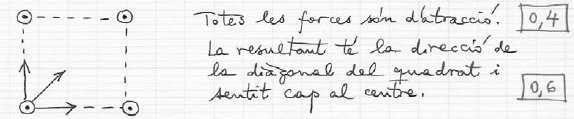 Totes les forces són d'atracció. 0,4
La resultant té la direcció de
la diagonal del quadrat i
sentit cap al centre. 0,6